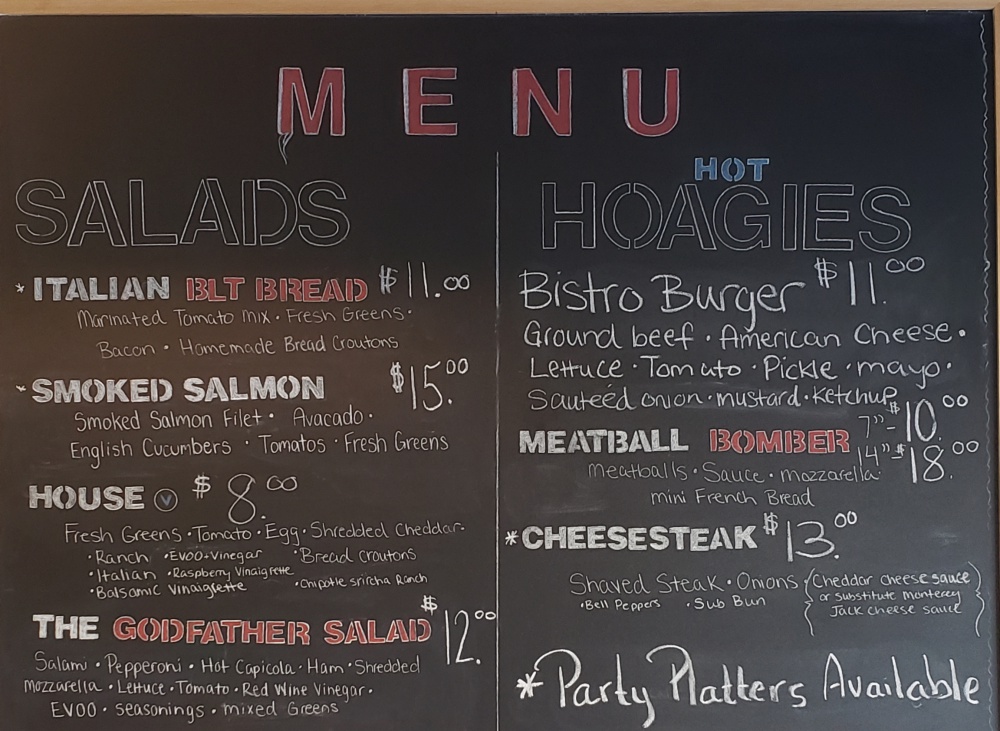 MENU
SALADS
* ITALIAN BLT BREAD $11.00
Marinated Tomato Mix • Fresh Greens •
Bacon • Homemade Bread Croutons
* SMOKED SALMON $15.00
Smoked Salmon Filet • Avacado •
English Cucumbers • Tomatos • Fresh Greens
HOUSE V $8.00
Fresh Greens • Tomato • Egg • Shredded Cheddar •
• Ranch • EVOO + Vinegar • Bread croutons
• Italian • Raspberry Vinaigrette
• Balsamic Vinaigrette • Chipotle sriracha Ranch
THE GODFATHER SALAD $12.00
Salami • Pepperoni • Hot Capicola • Ham • Shredded
Mozzarella • Lettuce • Tomato • Red Wine Vinegar •
EVOO • seasonings • mixed Greens
HOT
HOAGIES
Bistro Burger $11.00
Ground beef • American Cheese •
Lettuce • Tomato • Pickle • mayo •
Sauteéd onion • mustard • Ketchup
MEATBALL BOMBER 7"-$10.00
14"-$18.00
Meatballs • Sauce • mozzarella •
mini French Bread
* CHEESESTEAK $13.00
Shaved Steak • Onions (Cheddar cheese sauce
• Bell Peppers • Sub Bun or substitute Monterey
Jack cheese sauce)
* Party Platters Available